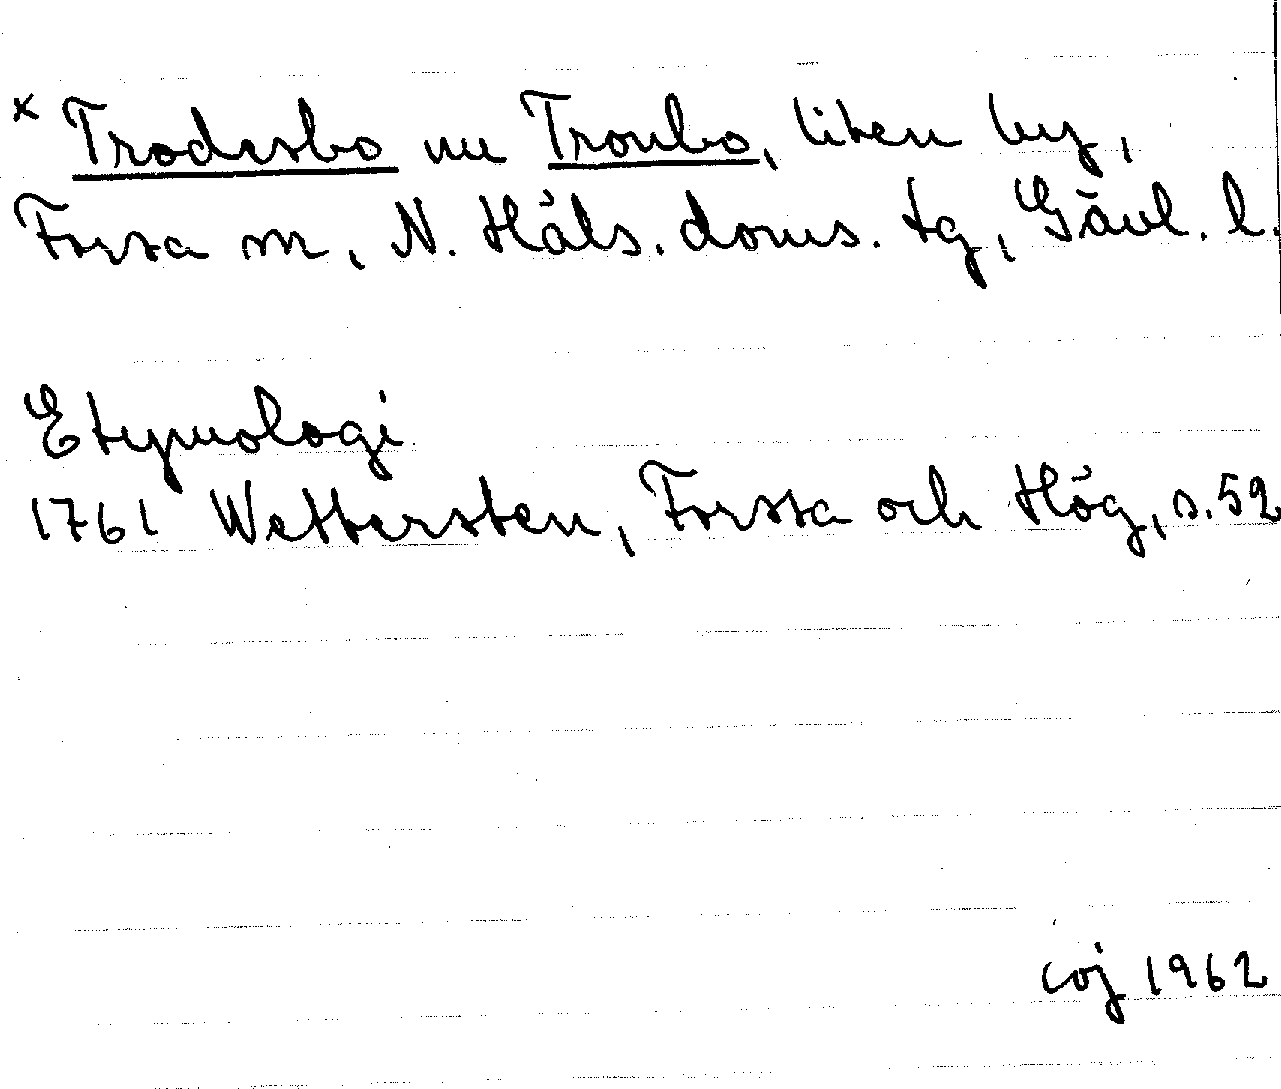 x Trodesbo nu Tronbo, liten by,
Forsa sn, N. Häls. doms. tg, Gävl. l.
Etymologi
1761 Wettersten, Forssa och Hög, s. 52
coj 1962